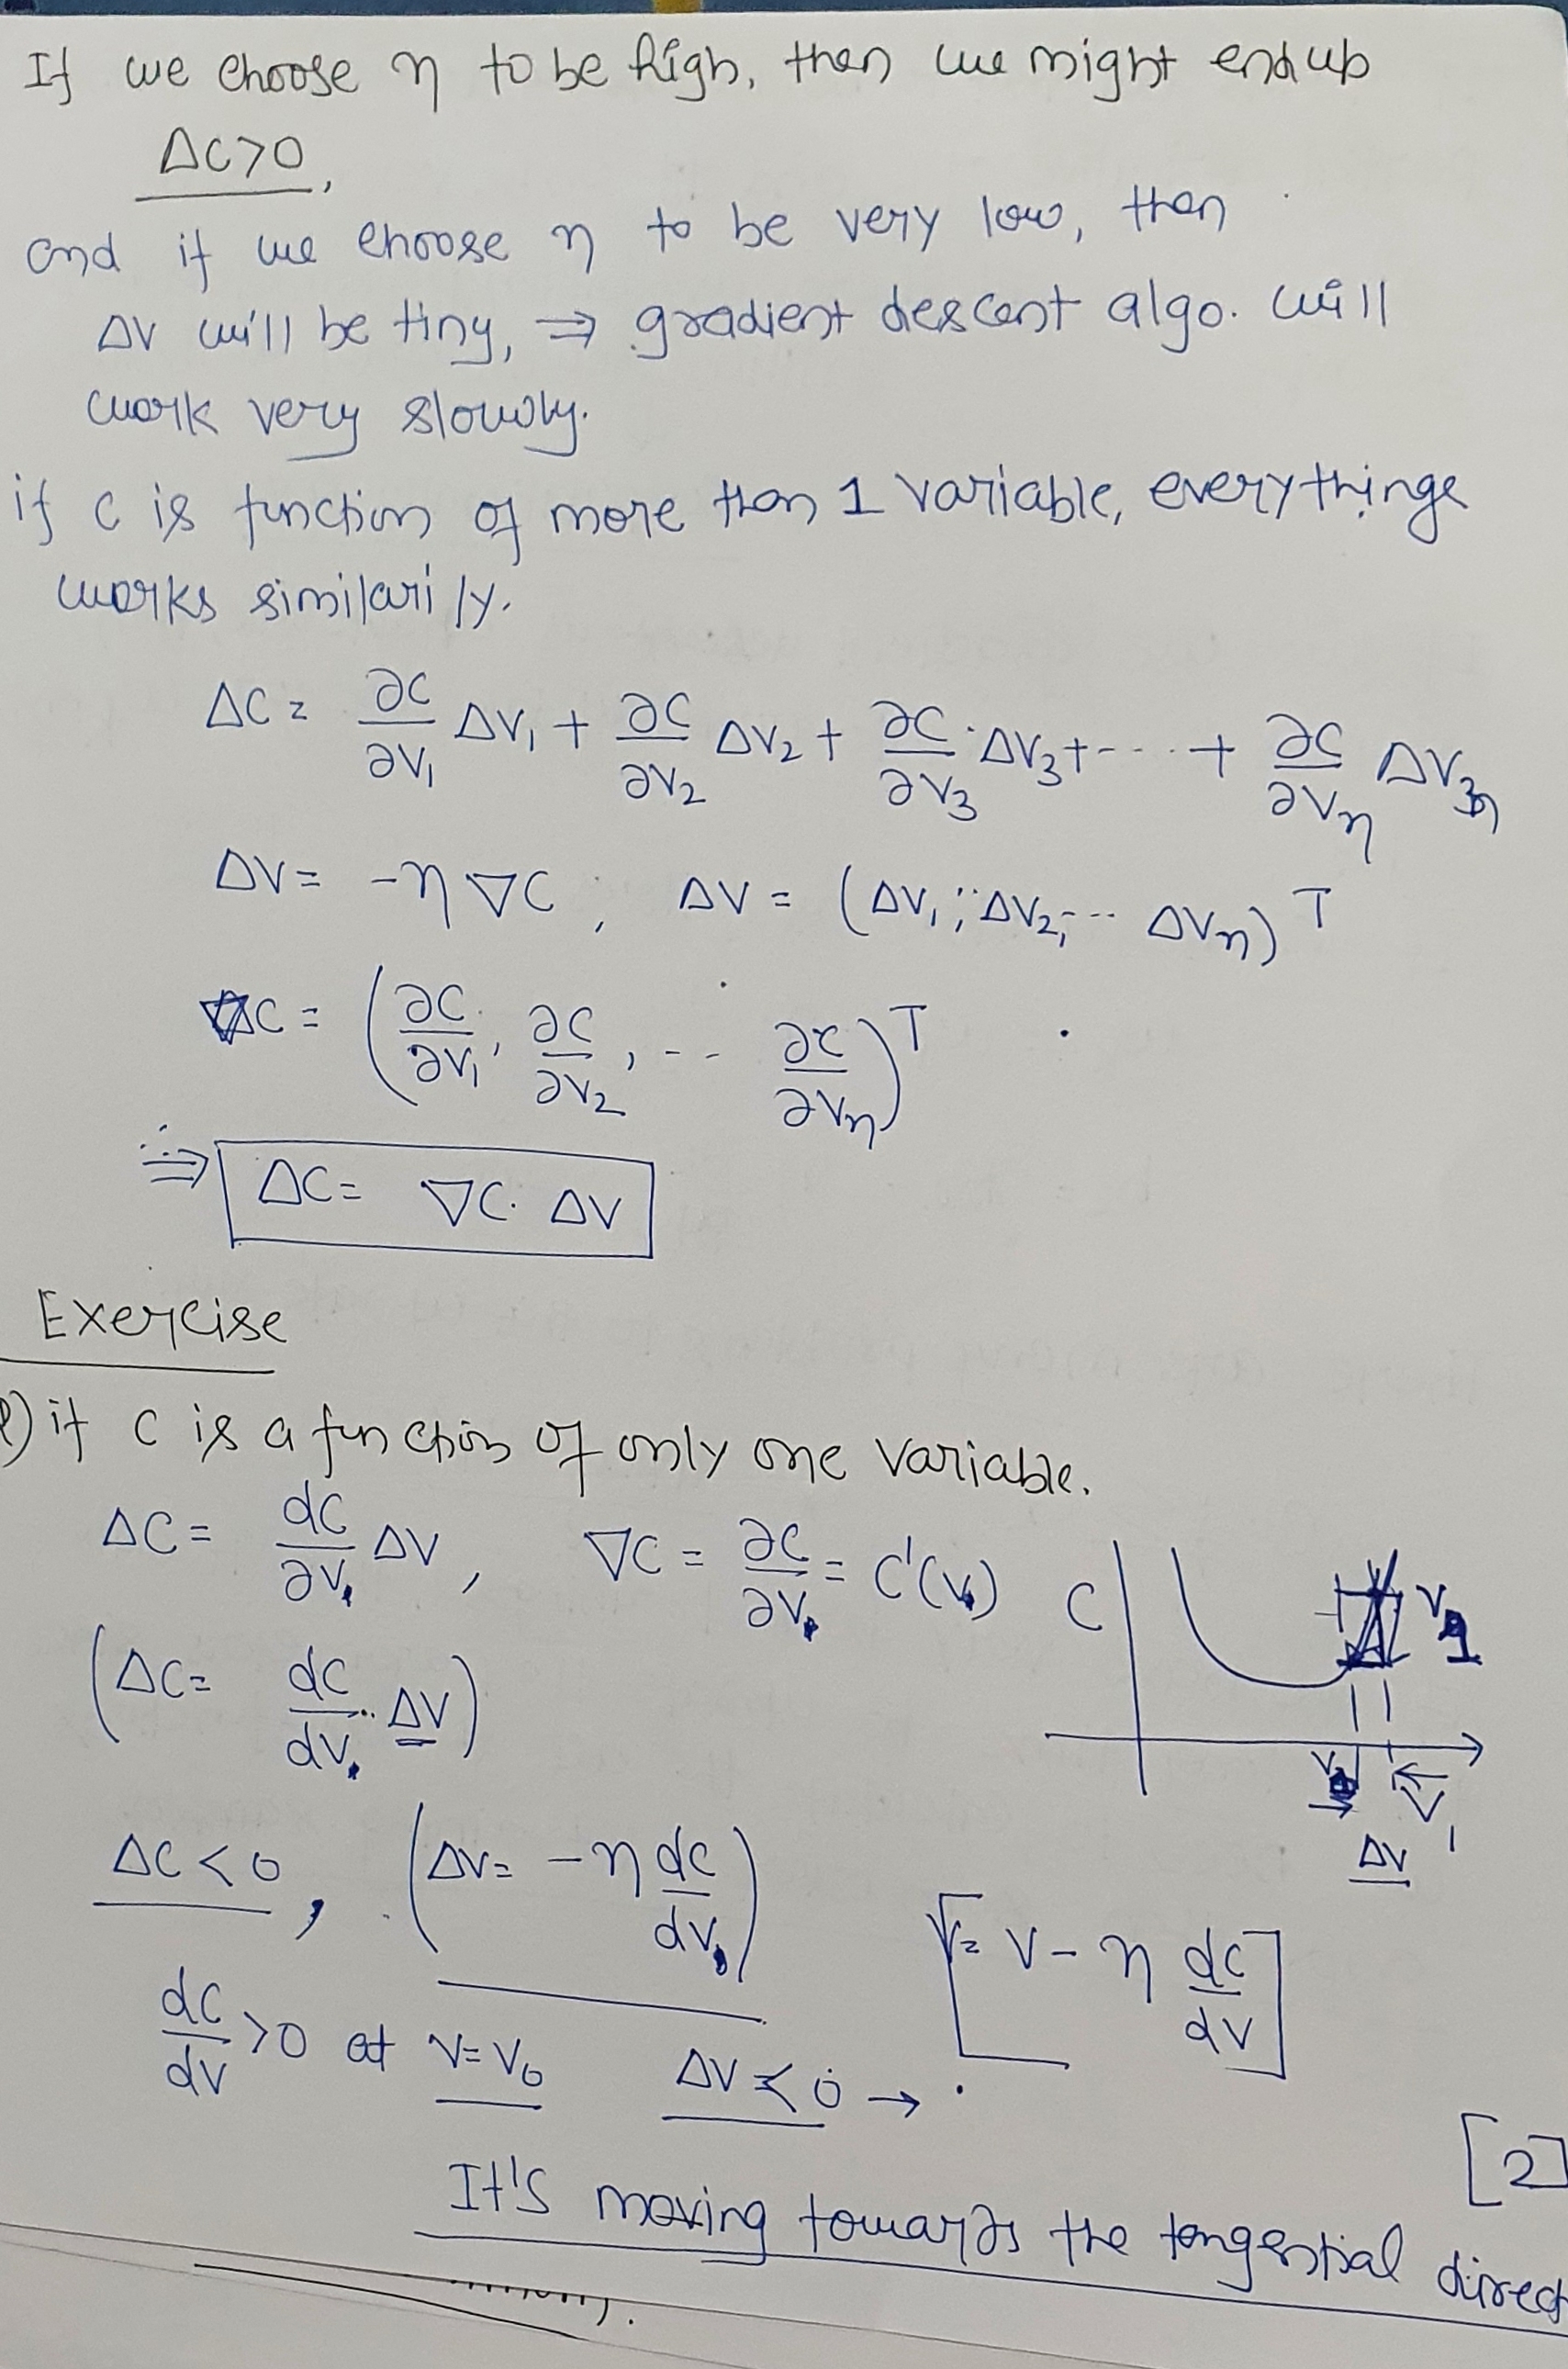 If we choose η to be high, then we might end up
ΔC>0,
and if we choose η to be very low, then
ΔV will be tiny, ⇒ gradient descent algo. will
work very slowly.
if C is function of more than 1 variable, everythings
works similarily.
ΔC = ∂C/∂V₁ ΔV₁ + ∂C/∂V₂ ΔV₂ + ∂C/∂V₃ · ΔV₃ + - - - + ∂C/∂Vη ΔVη
ΔV = -η ∇C, ΔV = (ΔV₁, ΔV₂, -- ΔVη)ᵀ
∇C = (∂C/∂V₁, ∂C/∂V₂, -- ∂C/∂Vη)ᵀ
∴ ⇒ ΔC = ∇C · ΔV
Exercise
if C is a function of only one variable.
ΔC = dC/∂V ΔV, ∇C = ∂C/∂V = C'(V)
C
(ΔC = dC/dV · ΔV)
V₁
ΔV
ΔC < 0, (ΔV = -η dC/dV)
V = V - η dC/dV
dC/dV > 0 at V = V₀ ΔV < 0 →
[2]
It's moving towards the tangential direct